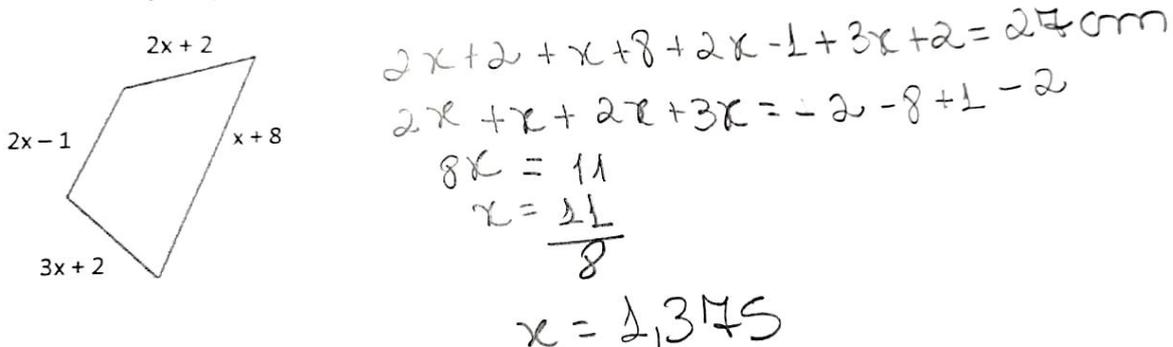 2x + 2
2x – 1
x + 8
3x + 2
2x+2+x+8+2x-1+3x+2=27cm
2x+x+2x+3x=-2-8+1-2
8x = 11
x = 11
8
x = 1,375